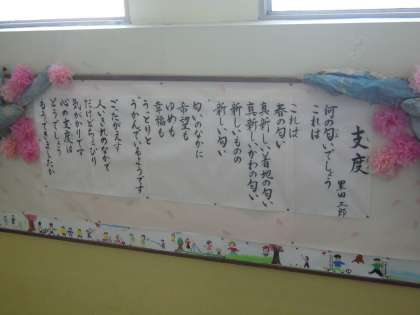 支度
黒田三郎
何の匂いでしょう
これは
これは
春の匂い
真新しい着地の匂い
真新しいかわの匂い
新しいものの
新しい匂い
匂いのなかに
希望も
ゆめも
幸福も
うっとりと
うかんでいるようです
ごったがえす
人いきれのなかで
だけどちょっぴり
気がかりです
心の支度は
どうでしょう
もうできましたか